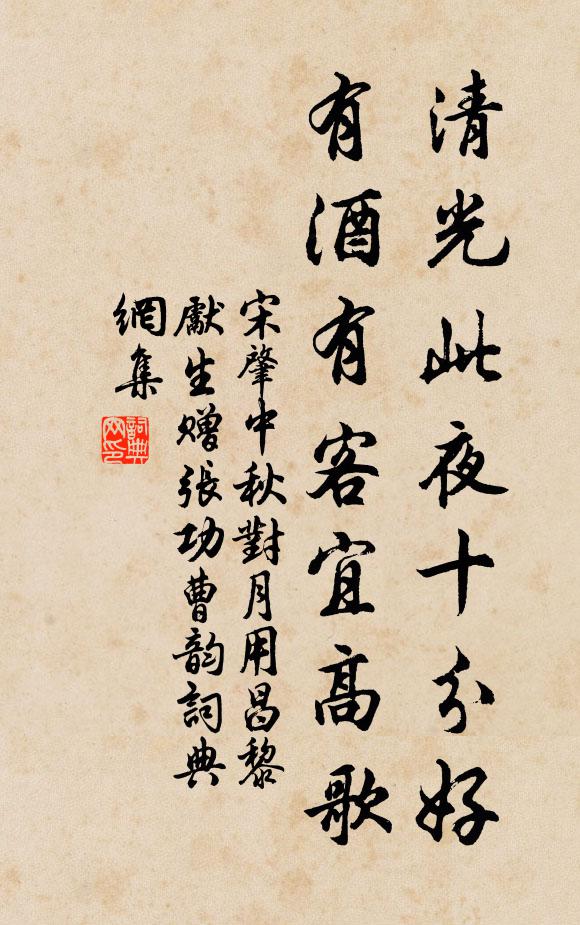 清光此夜十分好
有酒有客宜高歌
宋肇中秋對月用昌黎
獻生贈張功曹韵詞典
網集
詞典网印